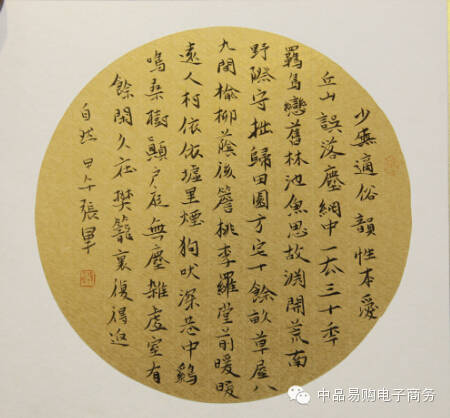 少無適俗韻性本愛
丘山誤落塵網中一去三十年
羈鳥戀舊林池魚思故淵開荒南
野際守拙歸田園方宅十餘畝草屋八
九間榆柳蔭後簷桃李羅堂前暖暖
遠人村依依墟里煙狗吠深巷中鷄
鳴桑樹顛戶庭無塵雜虛室有
餘閑久在樊籠裏復得返
自然 甲午張
中品易购电子商务